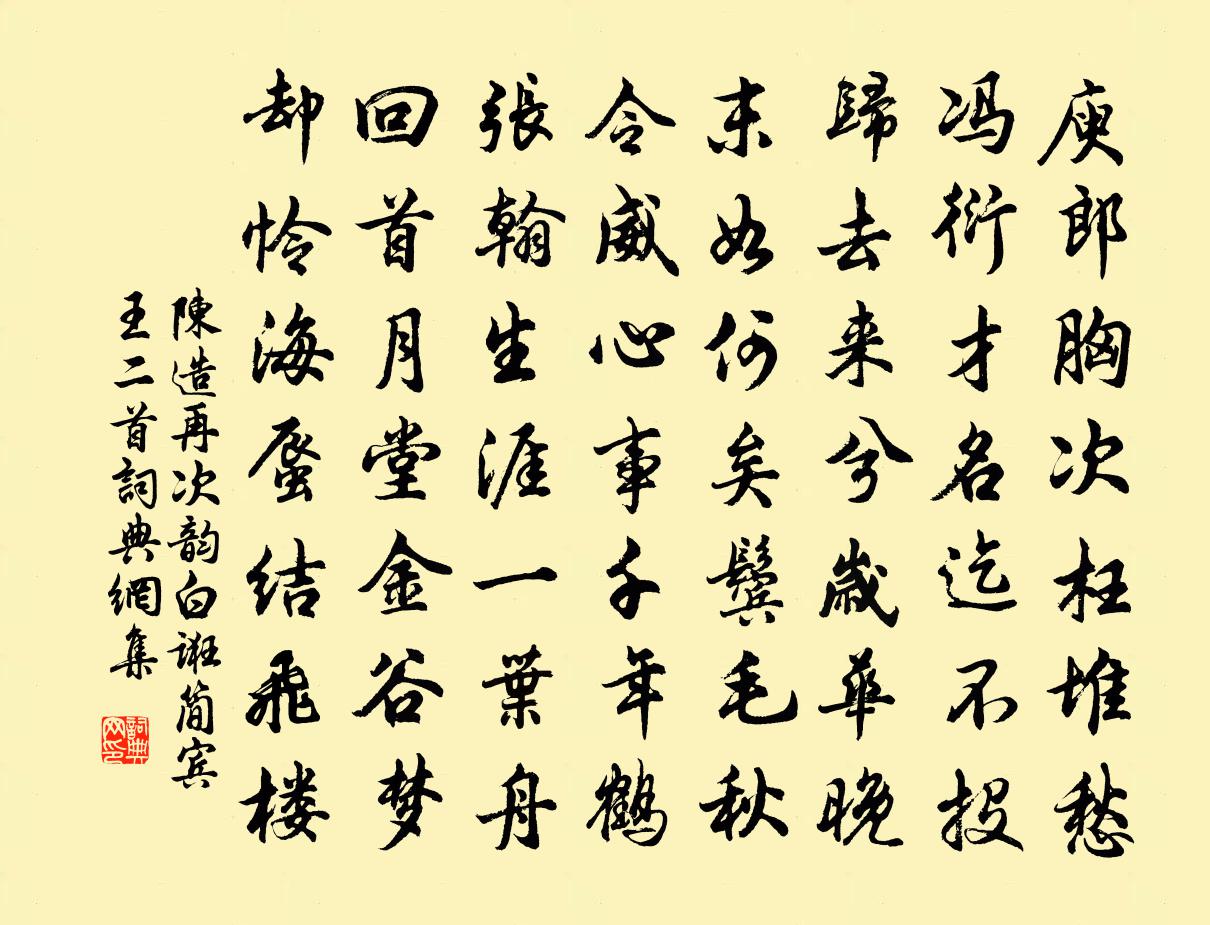 庾郎胸次枉堆愁
冯衍才名迄不投
歸去来兮歲華晚
末如何矣鬓毛秋
令威心事千年鶴
張翰生涯一葉舟
回首月堂金谷梦
却怜海蜃结飛楼
陳造再次韵白诳简宾
王二首詞典網集
詞典网印